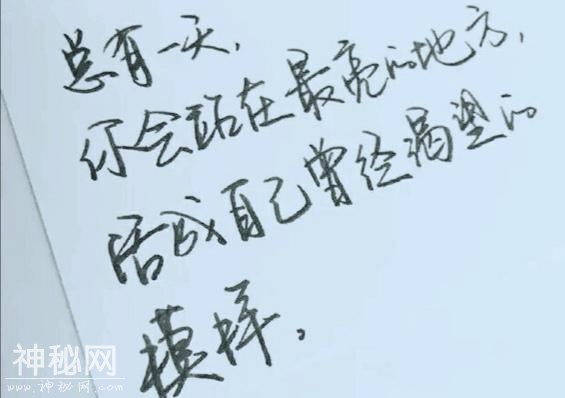 总有一天,
你会站在最亮的地方,
活成自己曾经渴望的
模样。
神秘网
www.神秘网.com